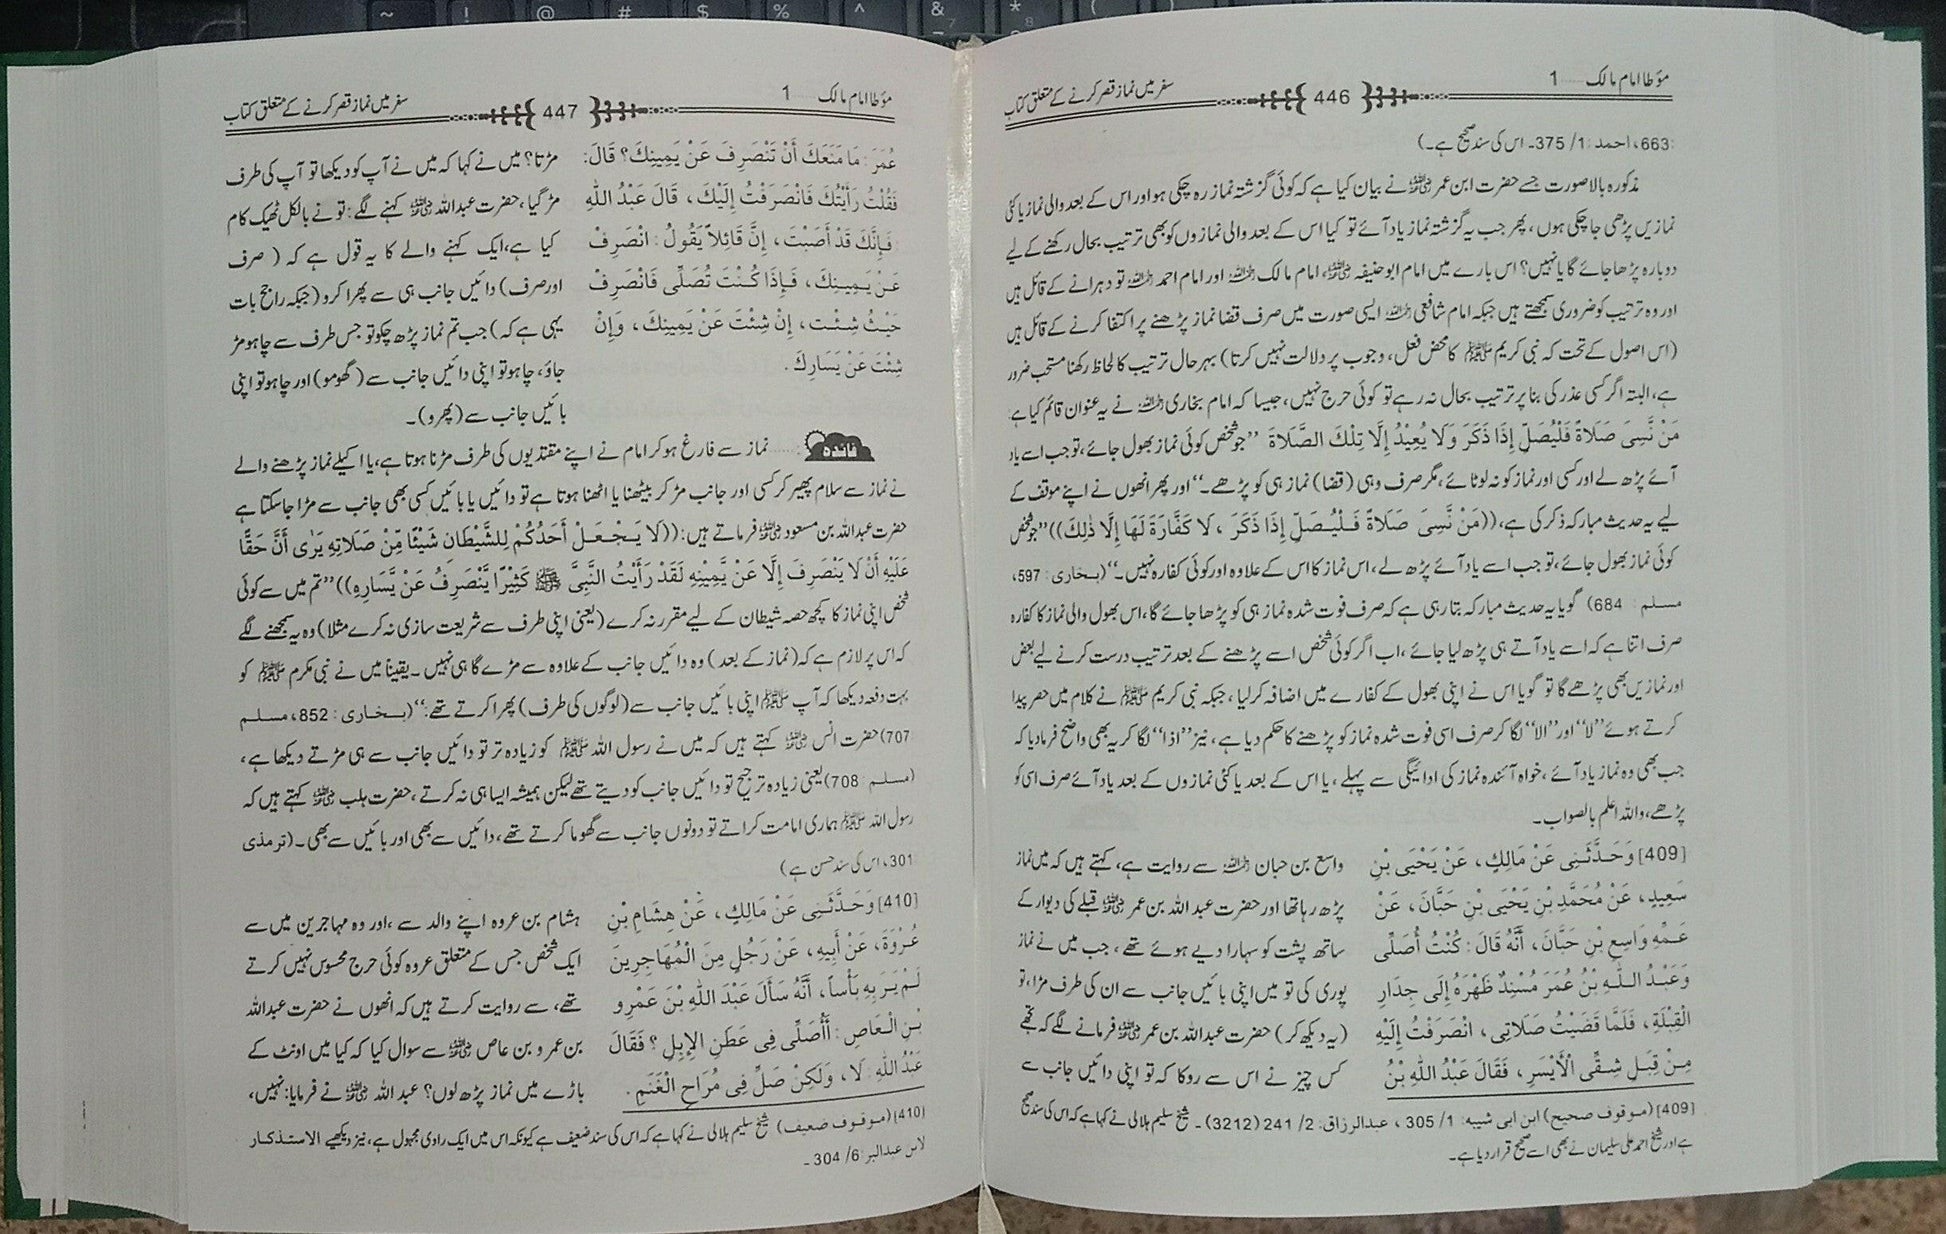 مؤطا امام مالک ...... 1
446
سفر میں نماز قصر کرنے کے متعلق کتاب
663، احمد: 1/ 375۔ اس کی سند صحیح ہے۔)
مذکورہ بالا صورت جسے حضرت ابن عمر رضی اللہ عنہ نے بیان کیا ہے کہ کوئی گزشتہ نماز رہ چکی ہو اور اس کے بعد والی نماز یا کئی
نمازیں پڑھی جا چکی ہوں، پھر جب یہ گزشتہ نماز یاد آئے تو کیا اس کے بعد والی نمازوں کو بھی ترتیب بحال رکھنے کے لیے
دوبارہ پڑھا جائے گا یا نہیں؟ اس بارے میں امام ابوحنیفہ، امام مالک رحمہ اللہ اور امام احمد رحمہ اللہ تو دہرانے کے قائل ہیں
اور وہ ترتیب کو ضروری سمجھتے ہیں جبکہ امام شافعی رحمہ اللہ ایسی صورت میں صرف قضا نماز پڑھنے پر اکتفا کرنے کے قائل ہیں
(اس اصول کے تحت کہ نبی کریم ﷺ کا محض فعل، وجوب پر دلالت نہیں کرتا) بہرحال ترتیب کا لحاظ رکھنا مستحب ضرور
ہے، البتہ اگر کسی عذر کی بنا پر ترتیب بحال نہ رہے تو کوئی حرج نہیں، جیسا کہ امام بخاری رحمہ اللہ نے یہ عنوان قائم کیا ہے
مَنْ نَّسِیَ صَلَاةً فَلْیُصَلِّ إِذَا ذَکَرَ وَلَا یُعِیْدُ إِلَّا تِلْكَ الصَّلَاةَ ’’جو شخص کوئی نماز بھول جائے، تو جب اسے یاد
آئے پڑھ لے اور کسی اور نماز کو نہ لوٹائے، مگر صرف وہی (قضا) نماز ہی کو پڑھے۔‘‘ اور پھر انھوں نے اپنے موقف کے
لیے یہ حدیث مبارکہ ذکر کی ہے، ((مَنْ نَّسِیَ صَلَاةً فَلْیُصَلِّ إِذَا ذَکَرَ، لَا کَفَّارَةَ لَهَا إِلَّا ذٰلِكَ)) ’’جو شخص
کوئی نماز بھول جائے، تو جب اسے یاد آئے پڑھ لے، اس نماز کا اس کے علاوہ اور کوئی کفارہ نہیں۔‘‘ (بخاری: 597،
مسلم: 684) گویا یہ حدیث مبارکہ بتا رہی ہے کہ صرف فوت شدہ نماز ہی کو پڑھا جائے گا، اس بھول والی نماز کا کفارہ
صرف اتنا ہے کہ اسے یاد آتے ہی پڑھ لیا جائے، اب اگر کوئی شخص اسے پڑھنے کے بعد ترتیب درست کرنے لیے بعض
اور نمازیں بھی پڑھے گا تو گویا اس نے اپنی بھول کے کفارے میں اضافہ کر لیا، جبکہ نبی کریم ﷺ نے کلام میں حصر پیدا
کرتے ہوئے ’’لا‘‘ اور ’’الا‘‘ لگا کر صرف اسی فوت شدہ نماز کو پڑھنے کا حکم دیا ہے، نیز ’’اذا‘‘ لگا کر یہ بھی واضح فرما دیا کہ
جب بھی وہ نماز یاد آئے، خواہ آئندہ نماز کی ادائیگی سے پہلے، یا اس کے بعد یا کئی نمازوں کے بعد یاد آئے صرف اسی کو
پڑھے، واللہ اعلم بالصواب۔
[409] وَحَدَّثَنِی عَنْ مَالِكٍ، عَنْ یَحْیَی بْنِ
سَعِیدٍ، عَنْ مُحَمَّدِ بْنِ یَحْیَی بْنِ حَبَّانَ، عَنْ
عَمِّهِ وَاسِعِ بْنِ حَبَّانَ، أَنَّهُ قَالَ: کُنْتُ أُصَلِّی
وَعَبْدُ اللّٰهِ بْنُ عُمَرَ مُسْنِدٌ ظَهْرَهُ إِلَی جِدَارِ
الْقِبْلَةِ، فَلَمَّا قَضَیْتُ صَلَاتِی، انْصَرَفْتُ إِلَیْهِ
مِنْ قِبَلِ شِقِّی الْأَیْسَرِ، فَقَالَ عَبْدُ اللّٰهِ بْنُ
واسع بن حبان رحمہ اللہ سے روایت ہے، کہتے ہیں کہ میں نماز
پڑھ رہا تھا اور حضرت عبد اللہ بن عمر رضی اللہ عنہ قبلے کی دیوار کے
ساتھ پشت کو سہارا دیے ہوئے تھے، جب میں نے نماز
پوری کی تو میں اپنی بائیں جانب سے ان کی طرف مڑا، تو
(یہ دیکھ کر) حضرت عبداللہ بن عمر رضی اللہ عنہ فرمانے لگے کہ تجھے
کس چیز نے اس سے روکا کہ تو اپنی دائیں جانب سے
[409] (موقوف صحیح) ابن ابی شیبہ: 1/ 305، عبدالرزاق: 2/ 241 (3212)۔ شیخ سلیم ہلالی نے کہا ہے کہ اس کی سند صحیح
ہے اور شیخ احمد علی سلیمان نے بھی اسے صحیح قرار دیا ہے۔
مؤطا امام مالک ...... 1
447
سفر میں نماز قصر کرنے کے متعلق کتاب
عُمَرَ: مَا مَنَعَكَ أَنْ تَنْصَرِفَ عَنْ یَمِینِكَ؟ قَالَ:
فَقُلْتُ رَأَیْتُكَ فَانْصَرَفْتُ إِلَیْكَ، قَالَ عَبْدُ اللّٰهِ
: فَإِنَّكَ قَدْ أَصَبْتَ، إِنَّ قَائِلاً یَقُولُ: انْصَرِفْ
عَنْ یَمِینِكَ، فَإِذَا کُنْتَ تُصَلِّی فَانْصَرِفْ
حَیْثُ شِئْتَ، إِنْ شِئْتَ عَنْ یَمِینِكَ، وَإِنْ
شِئْتَ عَنْ یَسَارِكَ.
مڑتا؟ میں نے کہا کہ میں نے آپ کو دیکھا تو آپ کی طرف
مڑ گیا، حضرت عبداللہ رضی اللہ عنہ کہنے لگے: تو نے بالکل ٹھیک کام
کیا ہے، ایک کہنے والے کا یہ قول ہے کہ (صرف
اور صرف) دائیں جانب ہی سے پھرا کرو (جبکہ راجح بات
یہی ہے کہ) جب تم نماز پڑھ چکو تو جس طرف سے چاہو مڑ
جاؤ، چاہو تو اپنی دائیں جانب سے (گھومو) اور چاہو تو اپنی
بائیں جانب سے (پھرو)۔
فائدہ ...... نماز سے فارغ ہو کر امام نے اپنے مقتدیوں کی طرف مڑنا ہوتا ہے، یا اکیلے نماز پڑھنے والے
نے نماز سے سلام پھیر کر کسی اور جانب مڑ کر بیٹھنا یا اٹھنا ہوتا ہے تو دائیں یا بائیں کسی بھی جانب سے مڑا جا سکتا ہے
حضرت عبداللہ بن مسعود رضی اللہ عنہ فرماتے ہیں: ((لَا یَجْعَلْ أَحَدُکُمْ لِلشَّیْطَانِ شَیْئًا مِّنْ صَلَاتِهِ یَرٰی أَنَّ حَقًّا
عَلَیْهِ أَنْ لَا یَنْصَرِفَ إِلَّا عَنْ یَّمِیْنِهِ لَقَدْ رَأَیْتُ النَّبِیَّ ﷺ کَثِیْرًا یَّنْصَرِفُ عَنْ یَّسَارِهِ)) ’’تم میں سے کوئی
شخص اپنی نماز کا کچھ حصہ شیطان کے لیے مقرر نہ کرے (یعنی اپنی طرف سے شریعت سازی نہ کرے مثلا) وہ یہ سمجھنے لگے
کہ اس پر لازم ہے کہ (نماز کے بعد) وہ دائیں جانب کے علاوہ سے مڑے گا ہی نہیں۔ یقیناً میں نے نبی مکرم ﷺ کو
بہت دفعہ دیکھا کہ آپ ﷺ اپنی بائیں جانب سے (لوگوں کی طرف) پھرا کرتے تھے:‘‘ (بخاری: 852، مسلم
707) حضرت انس رضی اللہ عنہ کہتے ہیں کہ میں نے رسول اللہ ﷺ کو زیادہ تر تو دائیں جانب سے ہی مڑتے دیکھا ہے،
(مسلم: 708) یعنی زیادہ ترجیح تو دائیں جانب کو دیتے تھے لیکن ہمیشہ ایسا ہی نہ کرتے، حضرت ہلب رضی اللہ عنہ کہتے ہیں کہ
رسول اللہ ﷺ ہماری امامت کراتے تو دونوں جانب سے گھوما کرتے تھے، دائیں سے بھی اور بائیں سے بھی۔ (ترمذی
301، اس کی سند حسن ہے)
[410] وَحَدَّثَنِی عَنْ مَالِكٍ، عَنْ هِشَامِ بْنِ
عُرْوَةَ، عَنْ أَبِیهِ، عَنْ رَجُلٍ مِنَ الْمُهَاجِرِینَ
لَمْ یَرَ بِهِ بَأْساً، أَنَّهُ سَأَلَ عَبْدَ اللّٰهِ بْنَ عَمْرِو
بْنِ الْعَاصِ: أَأُصَلِّی فِی عَطَنِ الْإِبِلِ؟ فَقَالَ
عَبْدُ اللّٰهِ: لَا، وَلَکِنْ صَلِّ فِی مُرَاحِ الْغَنَمِ.
ہشام بن عروہ اپنے والد سے، اور وہ مہاجرین میں سے
ایک شخص جس کے متعلق عروہ کوئی حرج محسوس نہیں کرتے
تھے، سے روایت کرتے ہیں کہ انھوں نے حضرت عبداللہ
بن عمرو بن عاص رضی اللہ عنہ سے سوال کیا کہ کیا میں اونٹ کے
باڑے میں نماز پڑھ لوں؟ عبد اللہ رضی اللہ عنہ نے فرمایا: نہیں،
[410] (موقوف ضعیف) شیخ سلیم ہلالی نے کہا ہے کہ اس کی سند ضعیف ہے کیونکہ اس میں ایک راوی مجہول ہے، نیز دیکھیے الاستذکار
لابن عبدالبر: 6/ 304۔